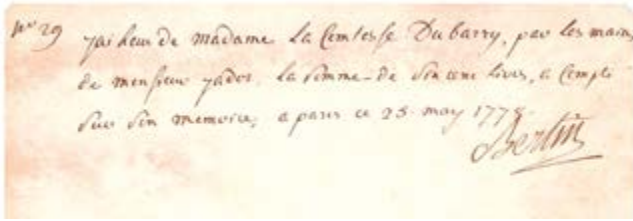 N° 29
jai Reçu de madame La Comtesse Dubarry, par les mains
de monsieur jados. La Somme de Sin cens Livres, a Compte
Sur Son memoire, a paris ce 25 may 177
Bertin